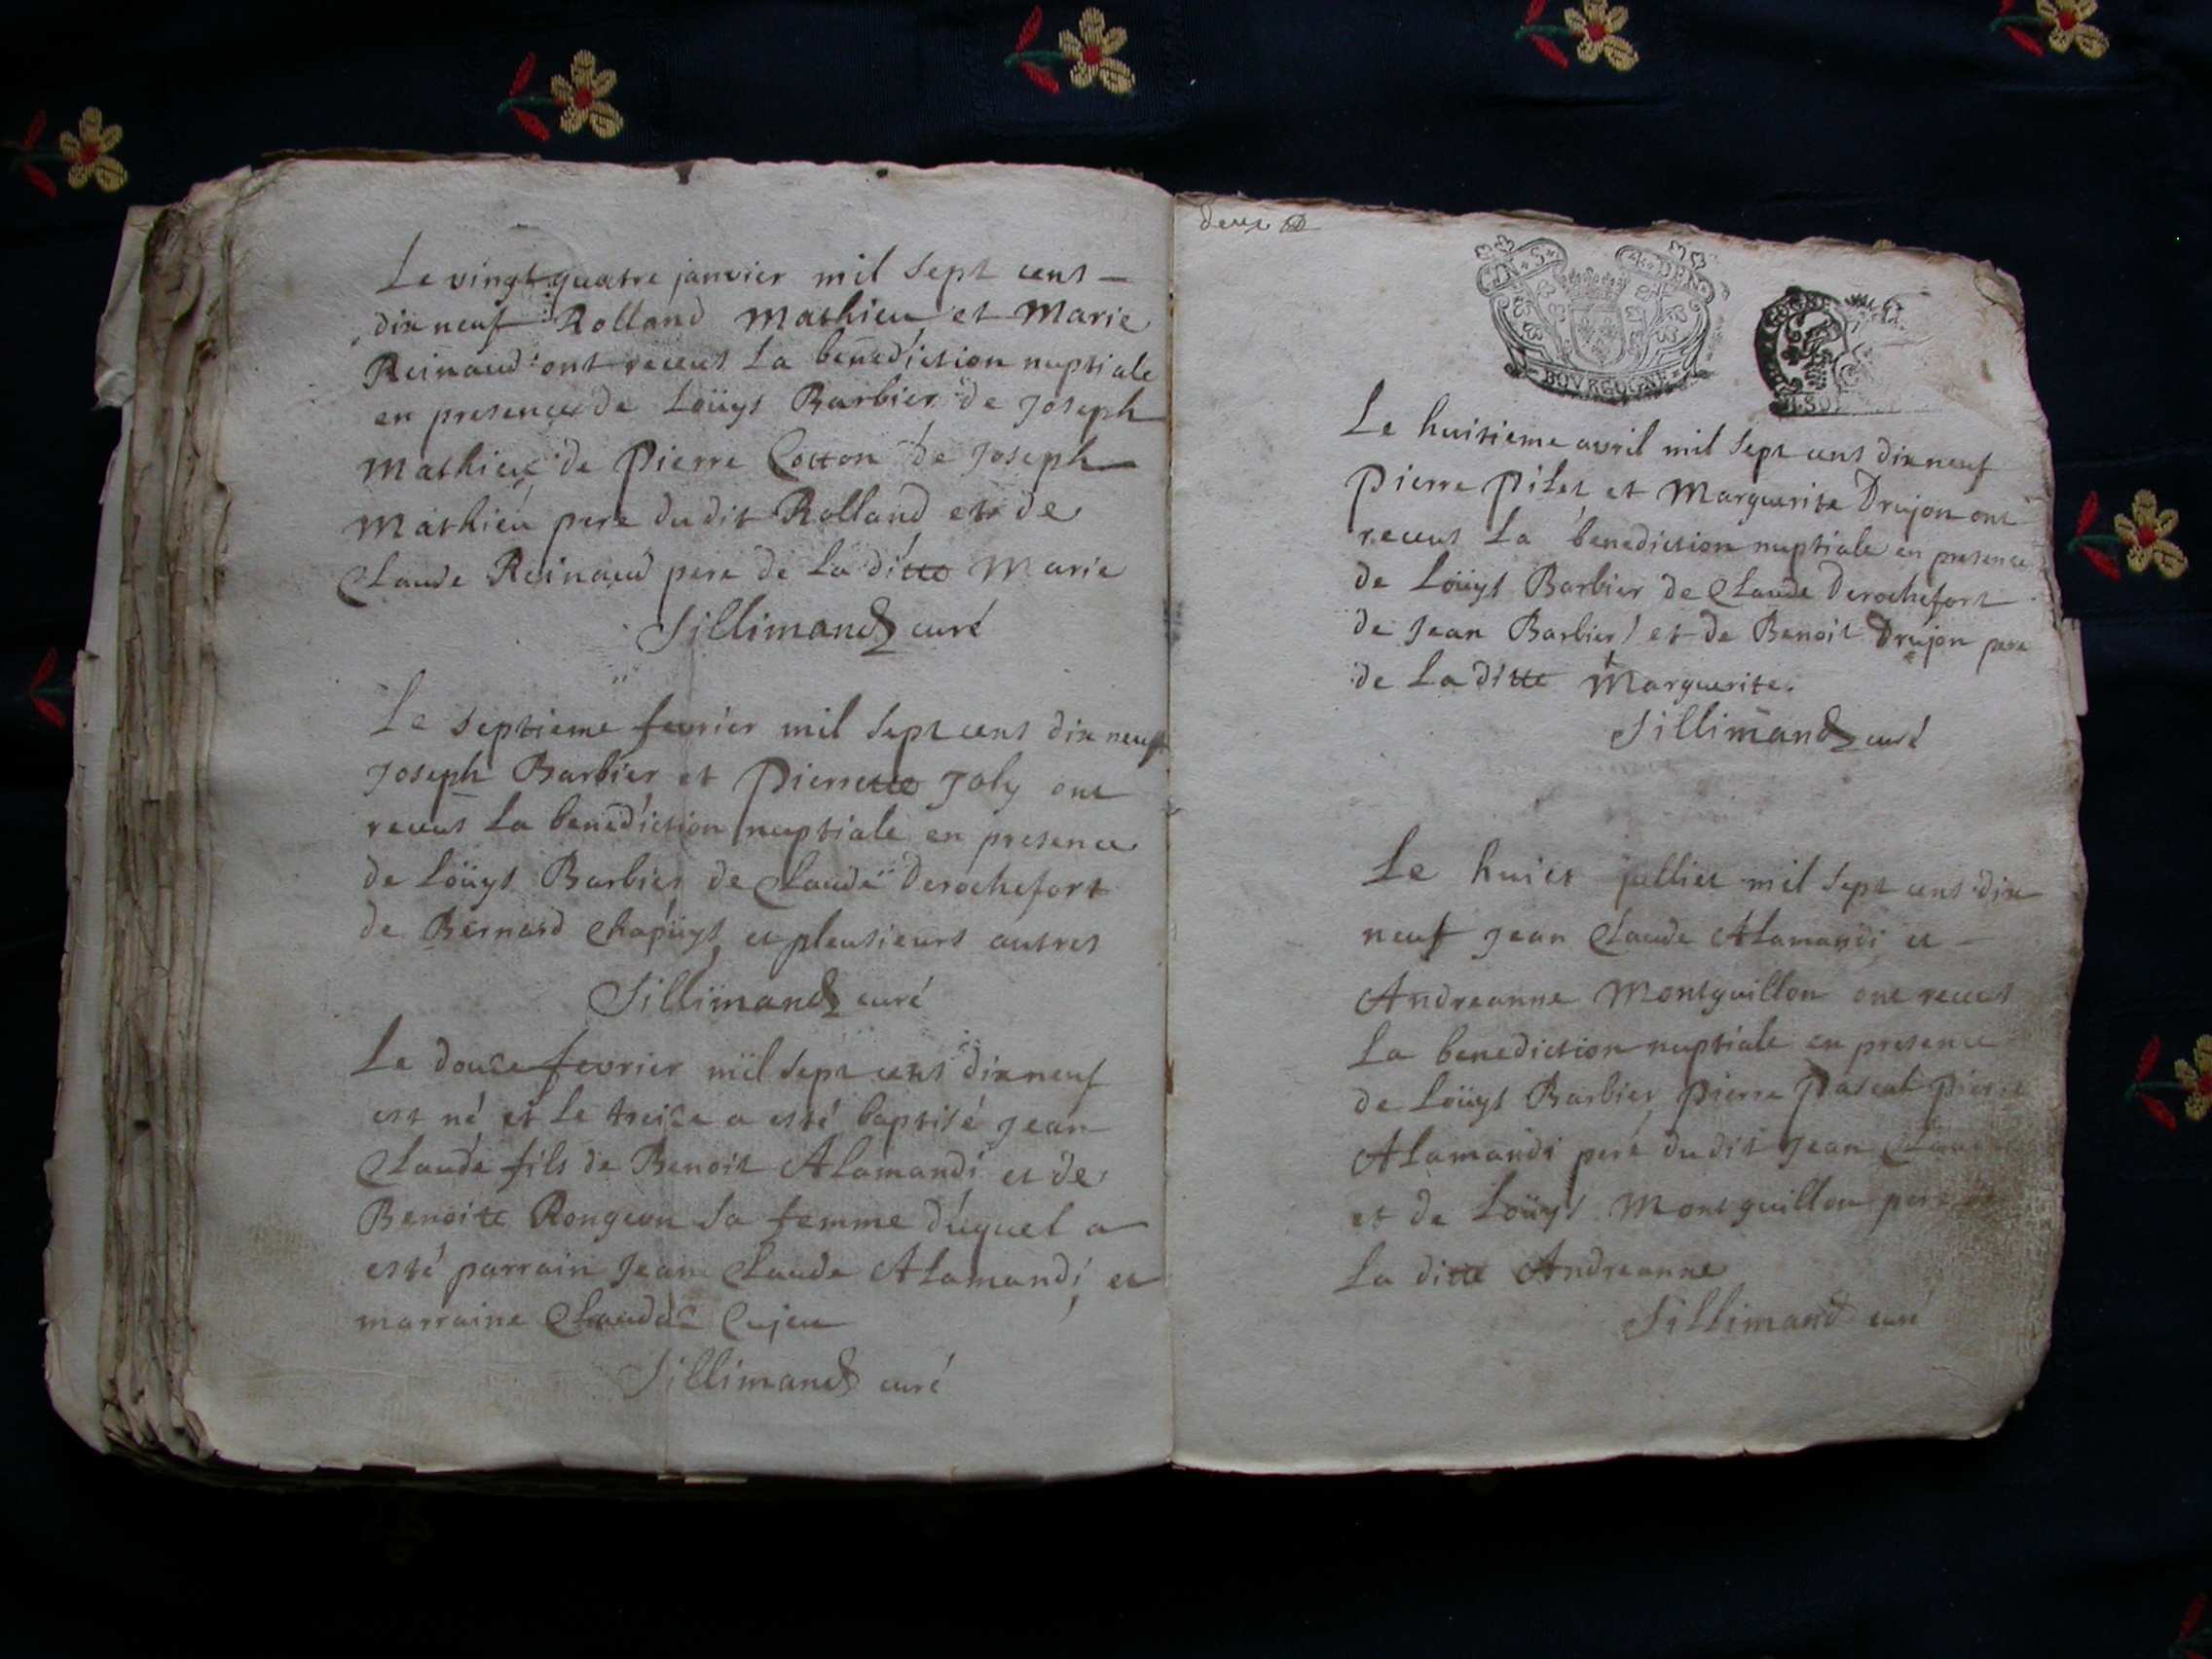 Le vingt quatre janvier mil sept cens
dix neuf Rolland Mathieu et Marie
Reinaud ont receus la benediction nuptiale
en presence de Loüys Barbier de Joseph
Mathieu de Pierre Cotton de Joseph
Mathieu pere dudit Rolland et de
Claude Reinaud pere de la ditte Marie
Sillimand curé
Le septieme fevrier mil sept cens dix neuf
Joseph Barbier et Pierrette Joly ont
receus la benediction nuptiale en presence
de Loüys Barbier de Claude Derochefort
de Bernard Chapuys, et pleusieurs autres
Sillimand curé
Le douse fevrier mil sept cens dix neuf
est né et le treise a esté baptisé Jean
Claude fils de Benoit Alamandi et de
Benoite Rongeon sa femme duquel a
esté parrain Jean Claude Alamandi, et
marraine Claudde Cujeu
Sillimand curé
deux
BOVRGOGNE
Le huitieme avril mil sept cens dix neuf
Pierre Pilet et Marguerite Drujon ont
receus la benediction nuptiale en presence
de Loüys Barbier de Claude Derochefort
de Jean Barbier et de Benoit Drujon pere
de la ditte Marguerite.
Sillimand curé
Le huict julliet mil sept cens dix
neuf Jean Claude Alamandi et
Andreanne Montguillon ont receus
la benediction nuptiale en presence
de Loüys Barbier Pierre Pascal Pierre
Alamandi pere dudit Jean Claude
et de Loüys Montguillon pere de
la ditte Andreanne
Sillimand curé